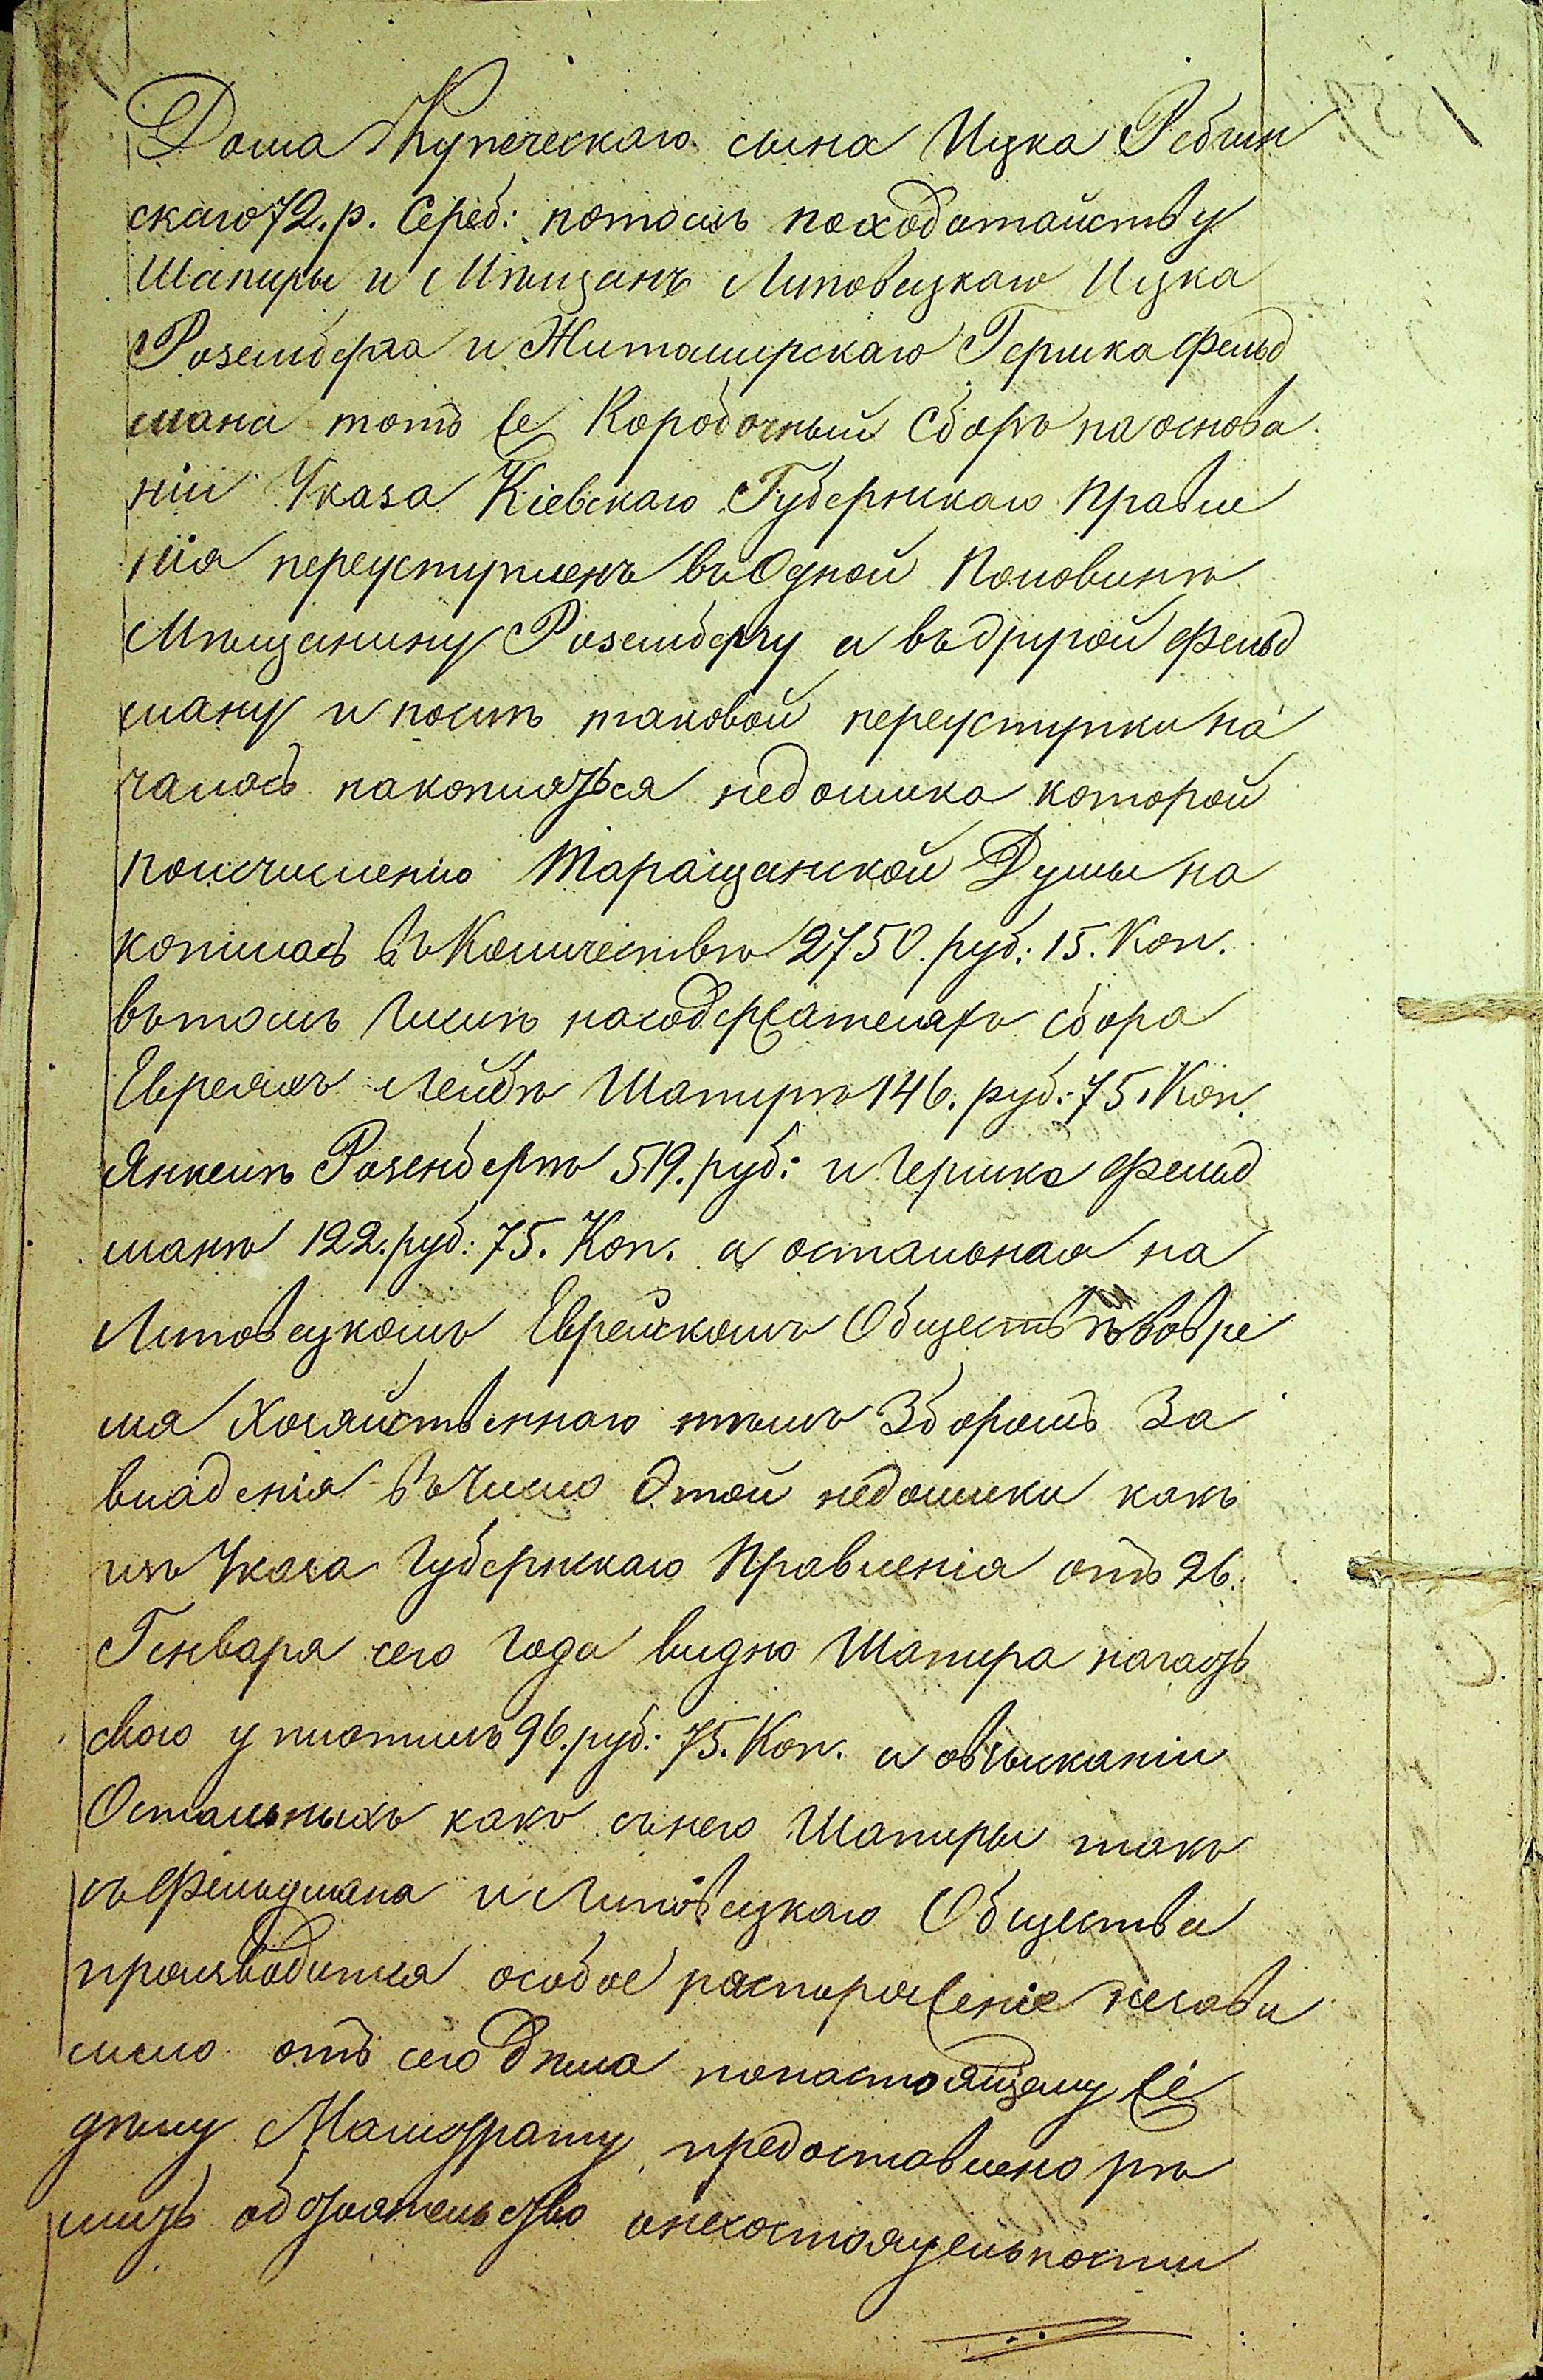 Дома Купеческаго сына Ицка Рсбин
скаго 72. р. Сереб: потомъ походатайству
Шапиры и Мѣщанъ Липовецкаго Ицка
Розенберга и Житомирскаго Гершка Фельд
мана тотъ же Коробочный Сборъ на основа
ніи Указа Кіевскаго Губернскаго Правле
нія переуступленъ въ Одной Половинѣ
Мѣщанину Розенбергу а въ другой Фельд
ману и послѣ таковой переуступки на
чалась накопляться недоимка которой
поисчисленію Таращанской Думы на
копилась въ Количествѣ 2750. руб: 15. Коп.
вътомъ Числѣ насодержателяхъ сбора
Евреяхъ Лейбѣ Шапирѣ 146. руб: 75. Коп.
Янкелѣ Розенбергѣ 519. руб: и Гершкѣ Фельд
манѣ 122. руб: 75. Коп. а остальная на
Липовецкомъ Еврейскомъ Обществѣ вовре
мя Хозяйственнаго тѣмъ Зборомъ За
владенія въ Число Этой недоимки какъ
изъ Указа Губернскаго Правленія отъ 26.
Генваря сего Года видно Шапира начасть
свою уплотилъ 96. руб: 75. Коп. а овзысканіи
Остальныхъ какъ сънего Шапиры такъ
съ Фельдмана и Липовецкаго Общества
производится особое распоряженіе незави
симо отъ сего дѣла понастоящему же
дѣлу Магистрату предоставлено рѣ
шить обстоятельство онесостоятельности